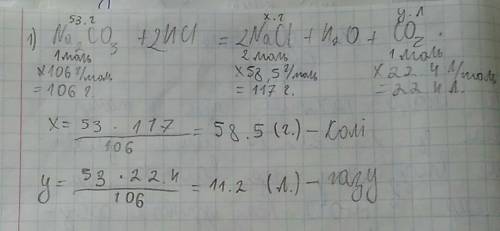 53.г х.г у.л
1) Na₂CO₃ + 2HCl = 2NaCl + H₂O + CO₂.
1 моль 2 моль 1 моль
×106 г/моль ×58,5 г/моль ×22 4 л/моль
= 106 г. = 117 г. = 22 4 л.
x = 53 · 117 / 106 = 58.5 (г.) – солі
y = 53 · 22.4 / 106 = 11.2 (л.) – газу